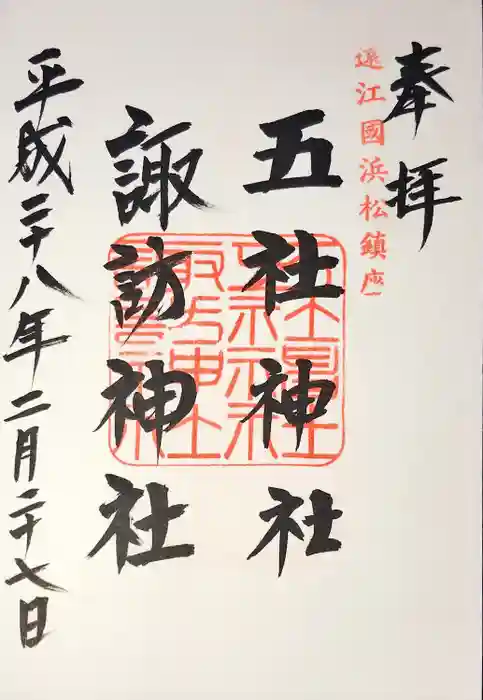 奉拝
遠江國浜松鎮座
五社神社
諏訪神社
平成二十八年二月二十七日